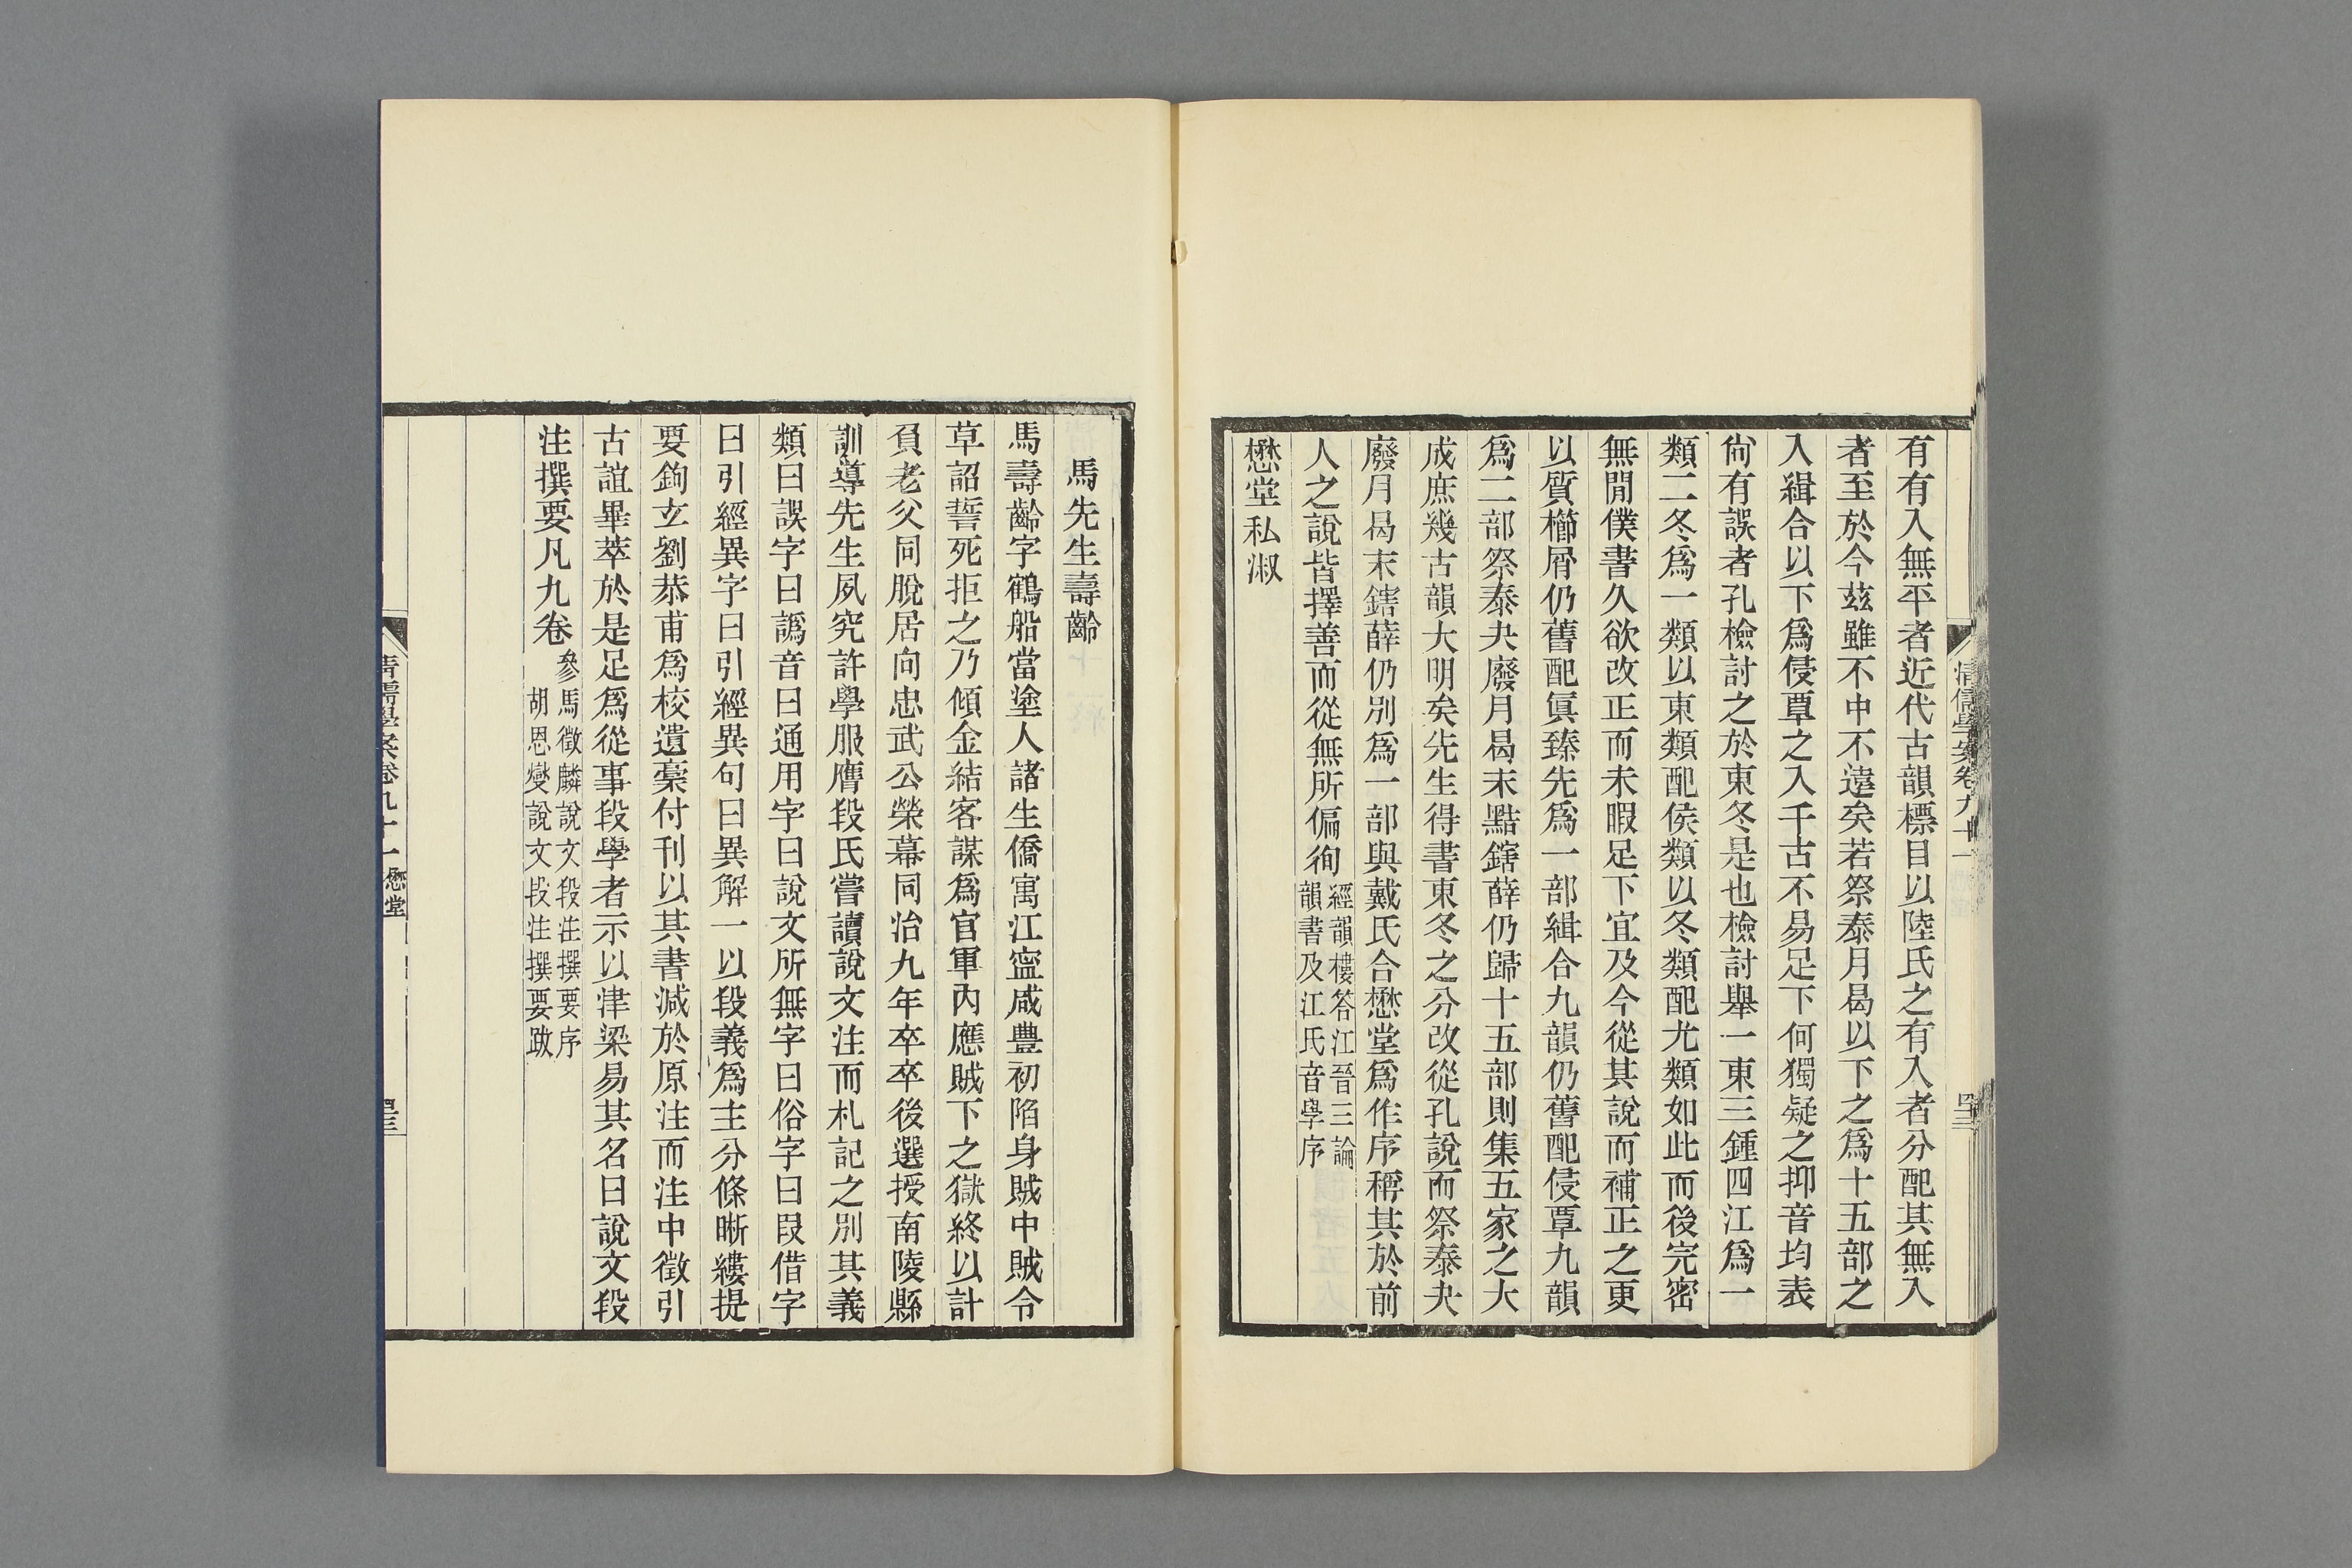 有有入無平者近代古韻標目以陸氏之有入者分配其無入
者至於今茲雖不中不遠矣若祭泰月曷以下之爲十五部之
入緝合以下爲侵覃之入千古不易足下何獨疑之抑音均表
尙有誤者孔檢討之於東冬是也檢討舉一東三鍾四江爲一
類二冬爲一類以東類配侯類以冬類配尤類如此而後完密
無閒僕書久欲改正而未暇足下宜及今從其說而補正之更
以質櫛屑仍舊配眞臻先爲一部緝合九韻仍舊配侵覃九韻
爲二部祭泰夬廢月曷末黠鎋薛仍歸十五部則集五家之大
成庶幾古韻大明矣先生得書東冬之分改從孔說而祭泰夬
廢月曷末鎋薛仍別爲一部與戴氏合懋堂爲作序稱其於前
人之說皆擇善而從無所偏徇
經韻樓答江晉三論
韻書及江氏音學序
懋堂私淑
清儒學案卷九十一
馬先生壽齡
馬壽齡字鶴船當塗人諸生僑寓江寧咸豐初陷身賊中賊令
草詔誓死拒之乃傾金結客謀爲官軍內應賊下之獄終以計
負老父同脫居向忠武公榮幕同治九年卒卒後選授南陵縣
訓導先生夙究許學服膺段氏嘗讀說文注而札記之別其義
類曰誤字曰譌音曰通用字曰說文所無字曰俗字曰叚借字
曰引經異字曰引經異句曰異解一以段義爲主分條晰縷提
要鉤玄劉恭甫爲校遺稾付刊以其書減於原注而注中徵引
古誼畢萃於是足爲從事段學者示以津梁易其名曰說文段
注撰要凡九卷
參馬徵麟說文段注撰要序
胡恩燮說文段注撰要跋
清儒學案卷九十一 懋堂